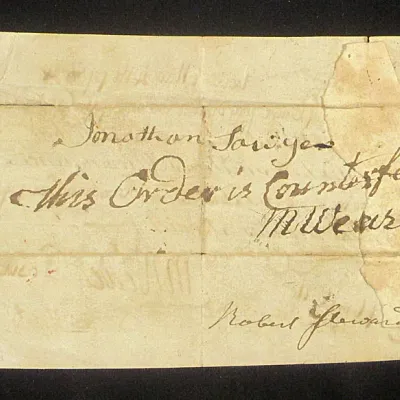 Jonathan Sawyer
This Order is Counterfe
MWear
Robert Steward